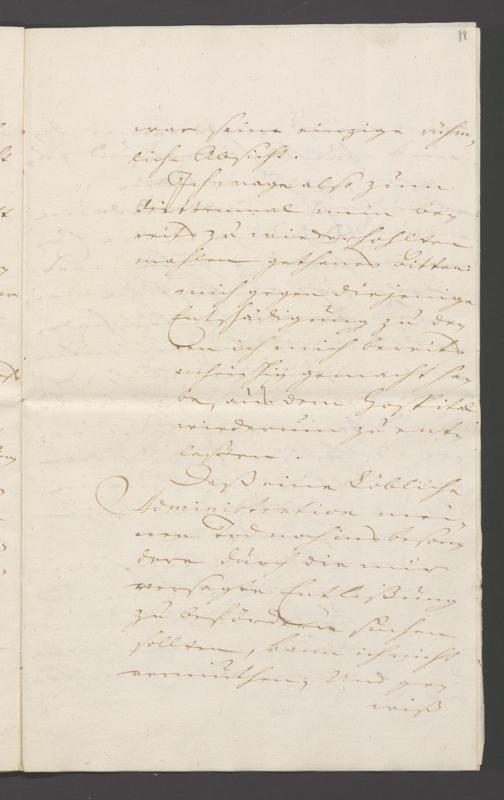 88
war seine einzige rühm-
liche Absicht.
Ich wage also zum
drittenmal mein be-
reits zu wiederhohlten
mahlen gethanes Bitten:
mich gegen diejenige
Entschädigung zu de-
ren ich mich bereits
anheischig gemacht ha-
be, aus dem Hospital
wiederum zu ent-
lassen.
Daß eine Löbliche
Administration mei-
nen Tod noch insbeson-
dere durch die mir
versagte Entlaßung
zu befördern suchen
sollten, kann ich nicht
vermuthen; Und ge-
wiß